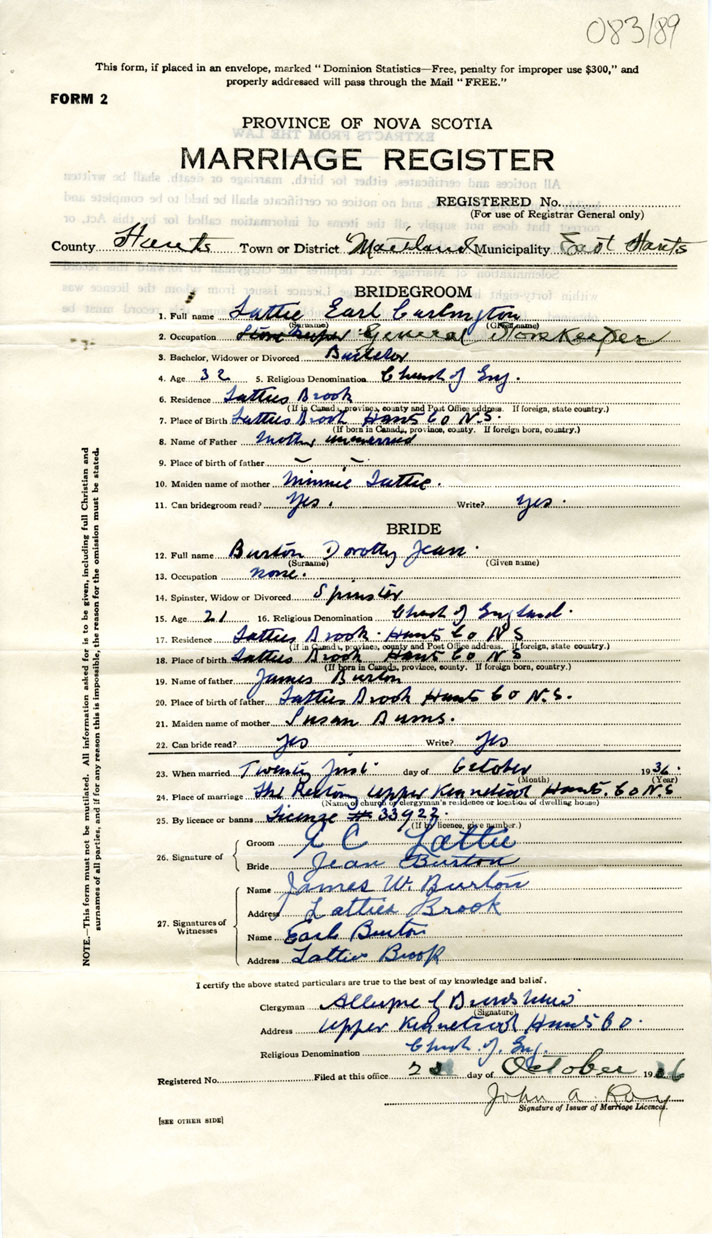 083/89
This form, if placed in an envelope, marked "Dominion Statistics—Free, penalty for improper use $300," and
properly addressed will pass through the Mail "FREE."
FORM 2
PROVINCE OF NOVA SCOTIA
MARRIAGE REGISTER
REGISTERED No.
(For use of Registrar General only)
County Hants Town or District Maitland Municipality East Hants
BRIDEGROOM
1. Full name Lattie Earl
(Surname) (Given name)
2. Occupation Storekeeper General Storekeeper
3. Bachelor, Widower or Divorced Bachelor
4. Age 32 5. Religious Denomination Church of Eng.
6. Residence Latties Brook
(If in Canada, province, county and Post Office address. If foreign, state country.)
7. Place of Birth Latties Brook Hants Co N.S.
(If born in Canada, province, county. If foreign born, country.)
8. Name of Father Mother unmarried
9. Place of birth of father — —
10. Maiden name of mother Minnie Lattie.
11. Can bridegroom read? Yes. Write? Yes.
BRIDE
12. Full name Burton Dorothy Jean.
(Surname) (Given name)
13. Occupation none.
14. Spinster, Widow or Divorced Spinster
15. Age 21 16. Religious Denomination Church of England.
17. Residence Latties Brook. Hants Co N S
(If in Canada, province, county and Post Office address. If foreign, state country.)
18. Place of birth Latties Brook Hants Co N S
(If born in Canada, province, county. If foreign born, country.)
19. Name of father James Burton
20. Place of birth of father Latties Brook Hants Co N.S.
21. Maiden name of mother Susan Burns.
22. Can bride read? Yes Write? Yes
23. When married Twenty first day of October 1936.
(Month) (Year)
24. Place of marriage The Rectory Upper Kennetcook Hants. Co N.S
(Name of church or clergyman's residence or location of dwelling house)
25. By licence or banns License #
(If by licence, give number.)
26. Signature of
Groom E C Lattie
Bride Jean Burton
27. Signatures of Witnesses
Name James W. Burton
Address Latties Brook
Name Earl Burton
Address Latties Brook
I certify the above stated particulars are true to the best of my knowledge and belief.
Clergyman
(Signature)
Address Upper Kennetcook Hants Co.
Religious Denomination Church of Eng.
Registered No. Filed at this office day of October 19
John A Roy
Signature of Issuer of Marriage Licences.
[SEE OTHER SIDE]
NOTE.—This form must not be mutilated. All information asked for is to be given, including full Christian and
surnames of all parties, and if for any reason this is impossible, the reason for the omission must be stated.